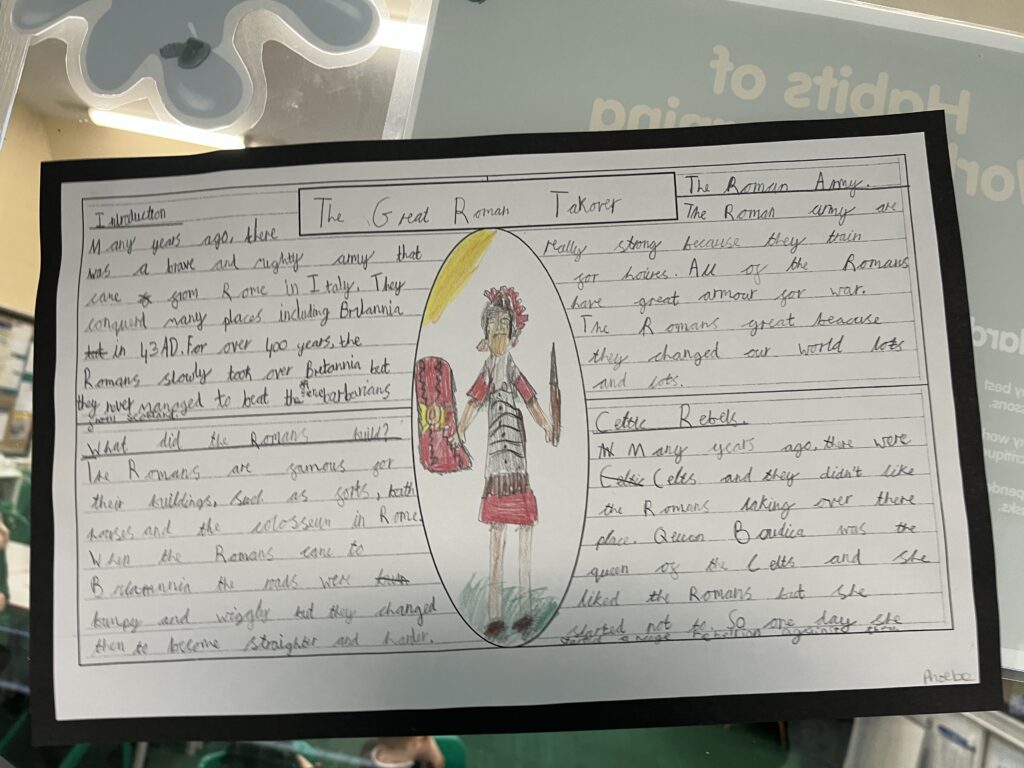 Habits of
The Great Roman Takover
Introduction
Many years ago, there
was a brave and mighty army that
came from Rome in Italy. They
conquerd many places including Britannia
in 43AD. For over 400 years, the
Romans slowly took over Britannia but
they never managed to beat the barbarians
from scotland
What did the Romans build?
The Romans are famous for
their buildings, such as forts, bath
houses and the colosseum in Rome.
When the Romans came to
the roads were
bumpy and wiggley but they changed
them to become straighter and harder.
The Roman Army.
The Roman army are
really strong because they train
for houres. All of the Romans
have great armour for war.
The Romans great beacause
they changed our world lots
and lots.
Celtic Rebels.
Many years ago, there were
Celtic Celts and they didn't like
the Romans taking over there
place. Queen Boudica was the
queen of the Celts and she
liked the Romans but she
started not to. So one day she
started a huge rebellion against them
Phoebe